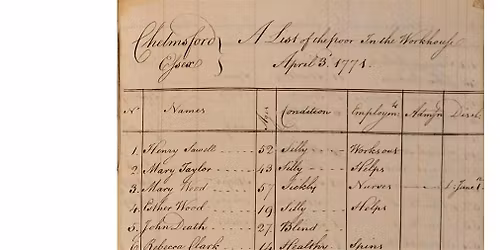 Chelmsford Essex } A List of the poor In the Workhouse
April 3d 1771.
No Names Age Condition Employmts Admn Disch
1. Henry Sewell 52 Silly Works out
2. Mary Taylor 43 Silly Helps
3. Mary Wood 57 Sickly Nurses
4. Esther Wood 19 Silly Helps
5. John Death 27 Blind
6. Rebecca Clark 14 Healthy Spins